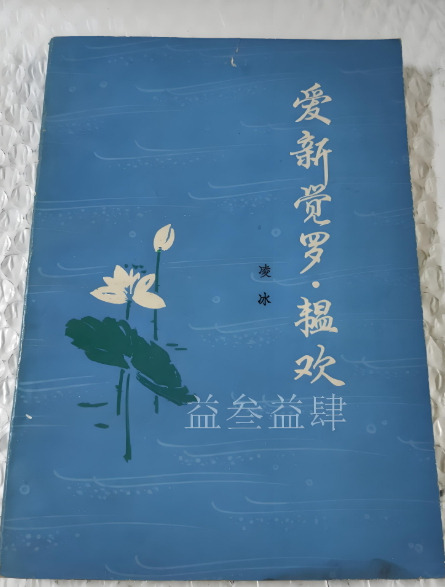 爱新觉罗·韫欢
凌冰
益叁益肆